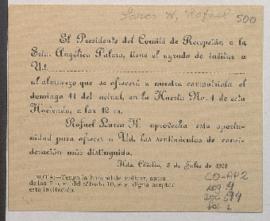 Larco H, Rafael
500
El Presidente del Comité de Recepción a la
Srta. Angélica Palma, tiene el agrado de invitar a
Ud.
al almuerzo que se ofrecerá a nuestra comprovinciana el
domingo 11 del actual, en la Huerta No. 1 de esta
Hacienda, a las 12 m.
Rafael Larco H. aprovecha esta oportu-
nidad para ofrecer a Ud. los sentimientos de consi-
deración más distinguida.
Hda. Chiclín, 5 de Julio de 1928
NOTA—Tenga la bondad de avisar, antes
esta invitación.